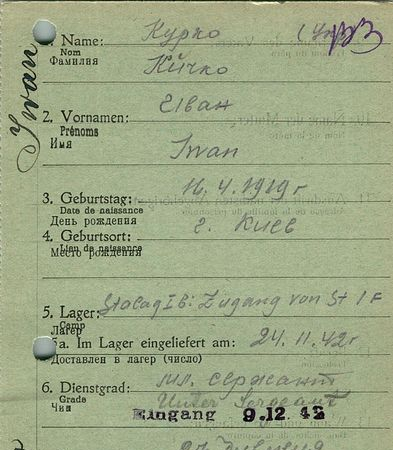 Iwan
1. Name: Курко (Укр) 193
Nom
Фамилия
Кичко
2. Vornamen: Еіван
Prénoms
Имя Iwan
3. Geburtstag: 16.4.1919г
Date de naissance
День рождения
4. Geburtsort: г. Киев
Lieu de naissance
Место рождения
5. Lager: Stalag IB: Zugang von St IF
Camp
Лагер
5a. Im Lager eingeliefert am: 24.11.42г
Доставлен в лагер (число)
6. Dienstgrad: мл. сержант
Grade
Чин Unter Sergeant
Eingang 9.12.42